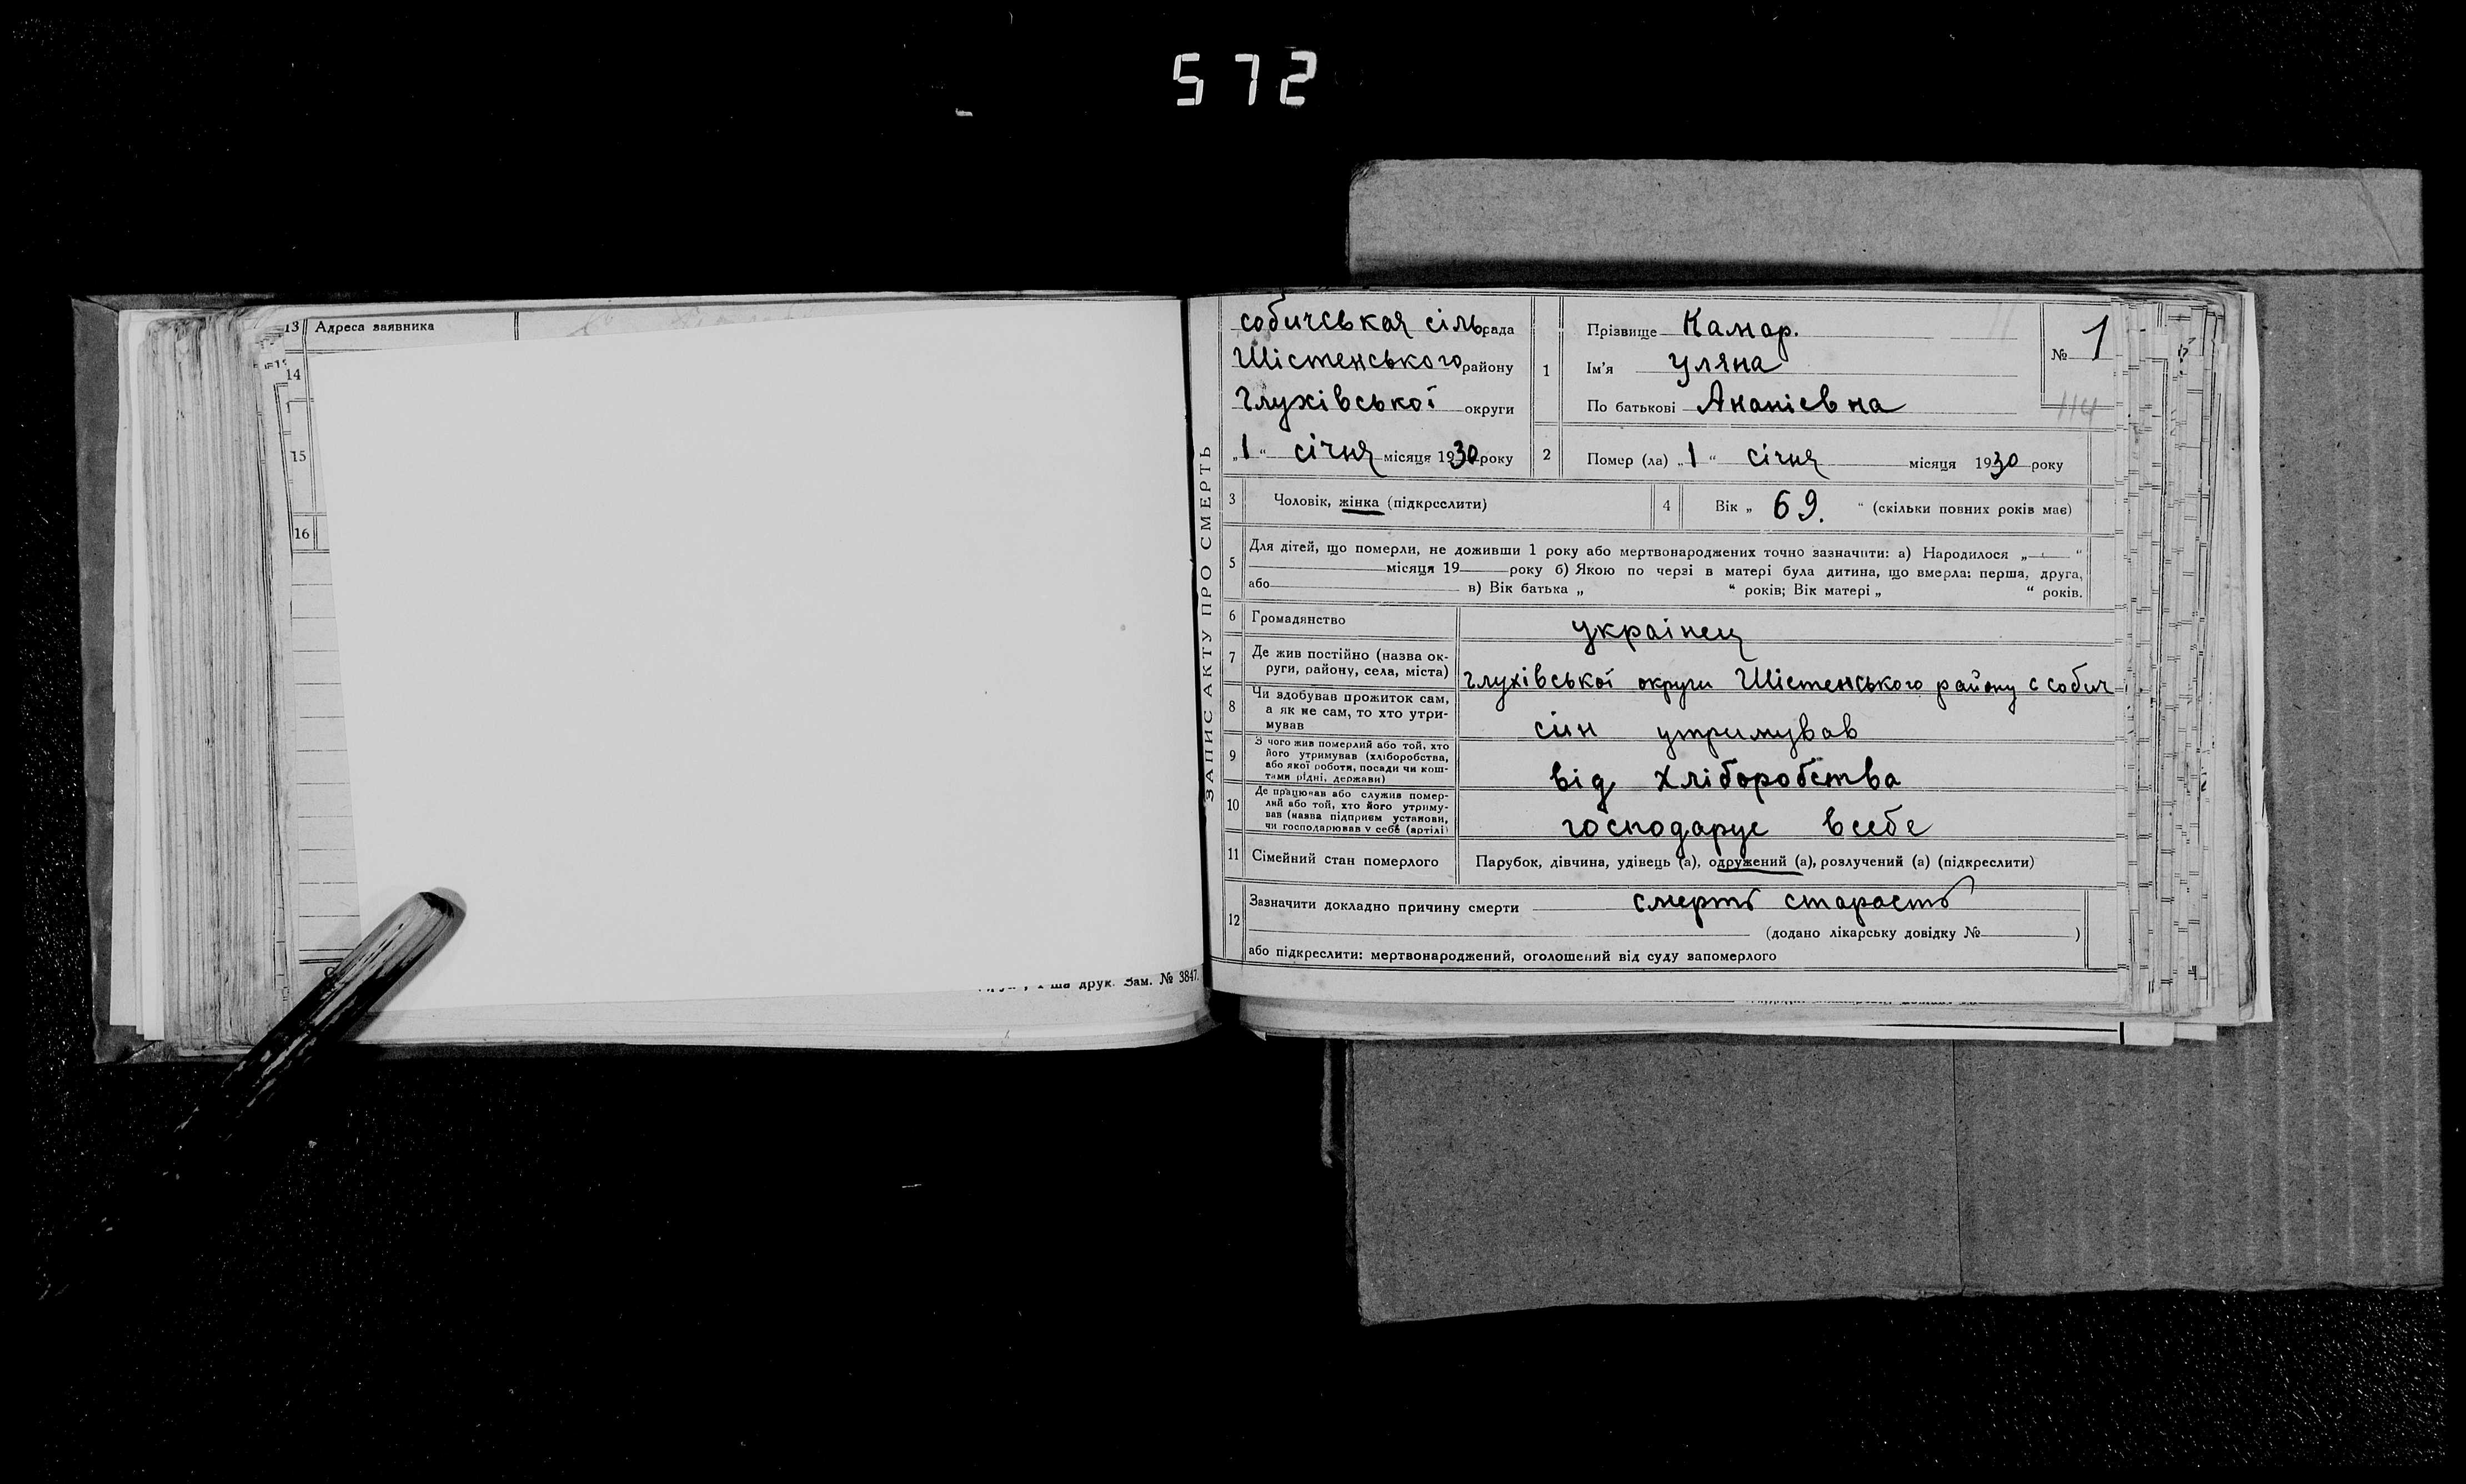 572
13 Адреса заявника
14
15
16
друк. Зам. № 3847.
ЗАПИС АКТУ ПРО СМЕРТЬ
собичськая сільрада
Шістенського району
Глухівської округи
„1“ січня місяця 1930 року
1
Прізвище Камар.
Ім'я Уляна
По батькові Ананієвна
№ 1
114
2 Помер (ла) „1“ січня місяця 1930 року
3 Чоловік, жінка (підкреслити)
4 Вік „69.“ (скільки повних років має)
5 Для дітей, що померли, не доживши 1 року або мертвонароджених точно зазначити: а) Народилося „ “
місяця 19 року б) Якою по черзі в матері була дитина, що вмерла: перша, друга,
або в) Вік батька „ “ років; Вік матері „ “ років.
6 Громадянство украінец
7 Де жив постійно (назва ок-
руги, району, села, міста) Глухівської округи Шістенського району с собич
8 Чи здобував прожиток сам,
а як не сам, то хто утри-
мував син утримував
9 З чого жив померлий або той, хто
його утримував (хліборобства,
або якої роботи, посади чи кош-
тами рідні, держави) від хліборобства
10 Де працював або служив помер-
лий або той, хто його утриму-
вав (назва підприєм установи,
чи господарював у себе (артілі) господарує всебе
11 Сімейний стан померлого Парубок, дівчина, удівець (а), одружений (а), розлучений (а) (підкреслити)
12 Зазначити докладно причину смерти смерть старость
(додано лікарську довідку № )
або підкреслити: мертвонароджений, оголошений від суду запомерлого